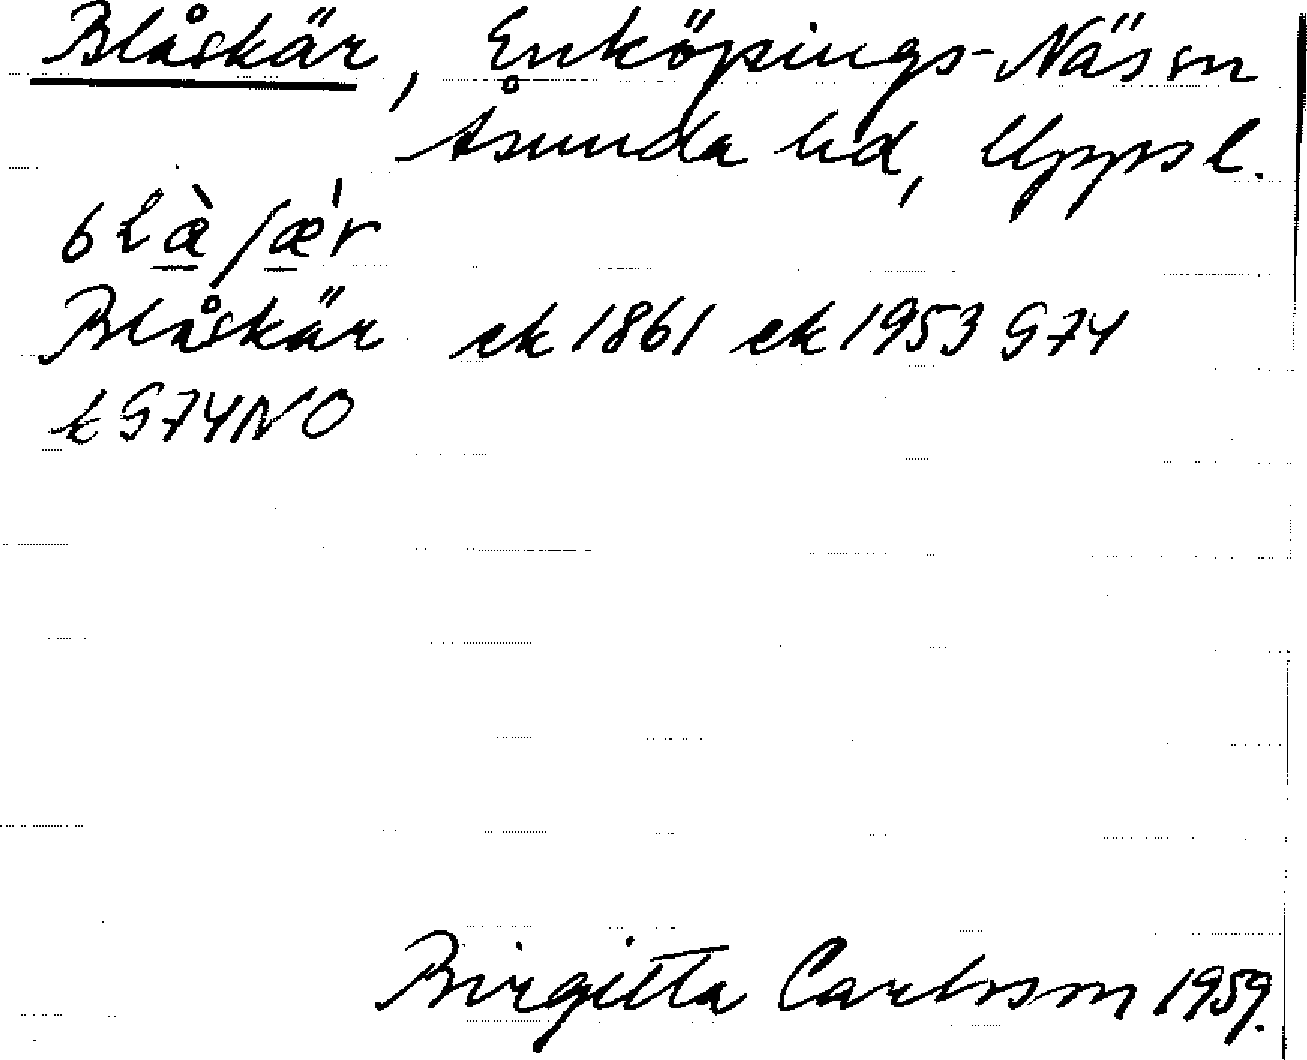 Blåskär, Enköpings-Näs sn
Åsunda hd, Uppsl.
Blåskär ek 1861 ek 1953 974
t 974NO
Birgitta Carlsson 1959.